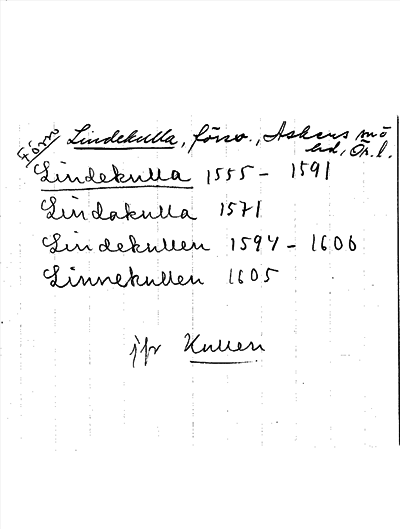 Förn
Lindekulla, försv., Askers sn
Lindekulla 1555 - 1591
Lindakulla 1571
Lindekullen 1594 - 1606
Linnekullen 1605
jfr Kullen